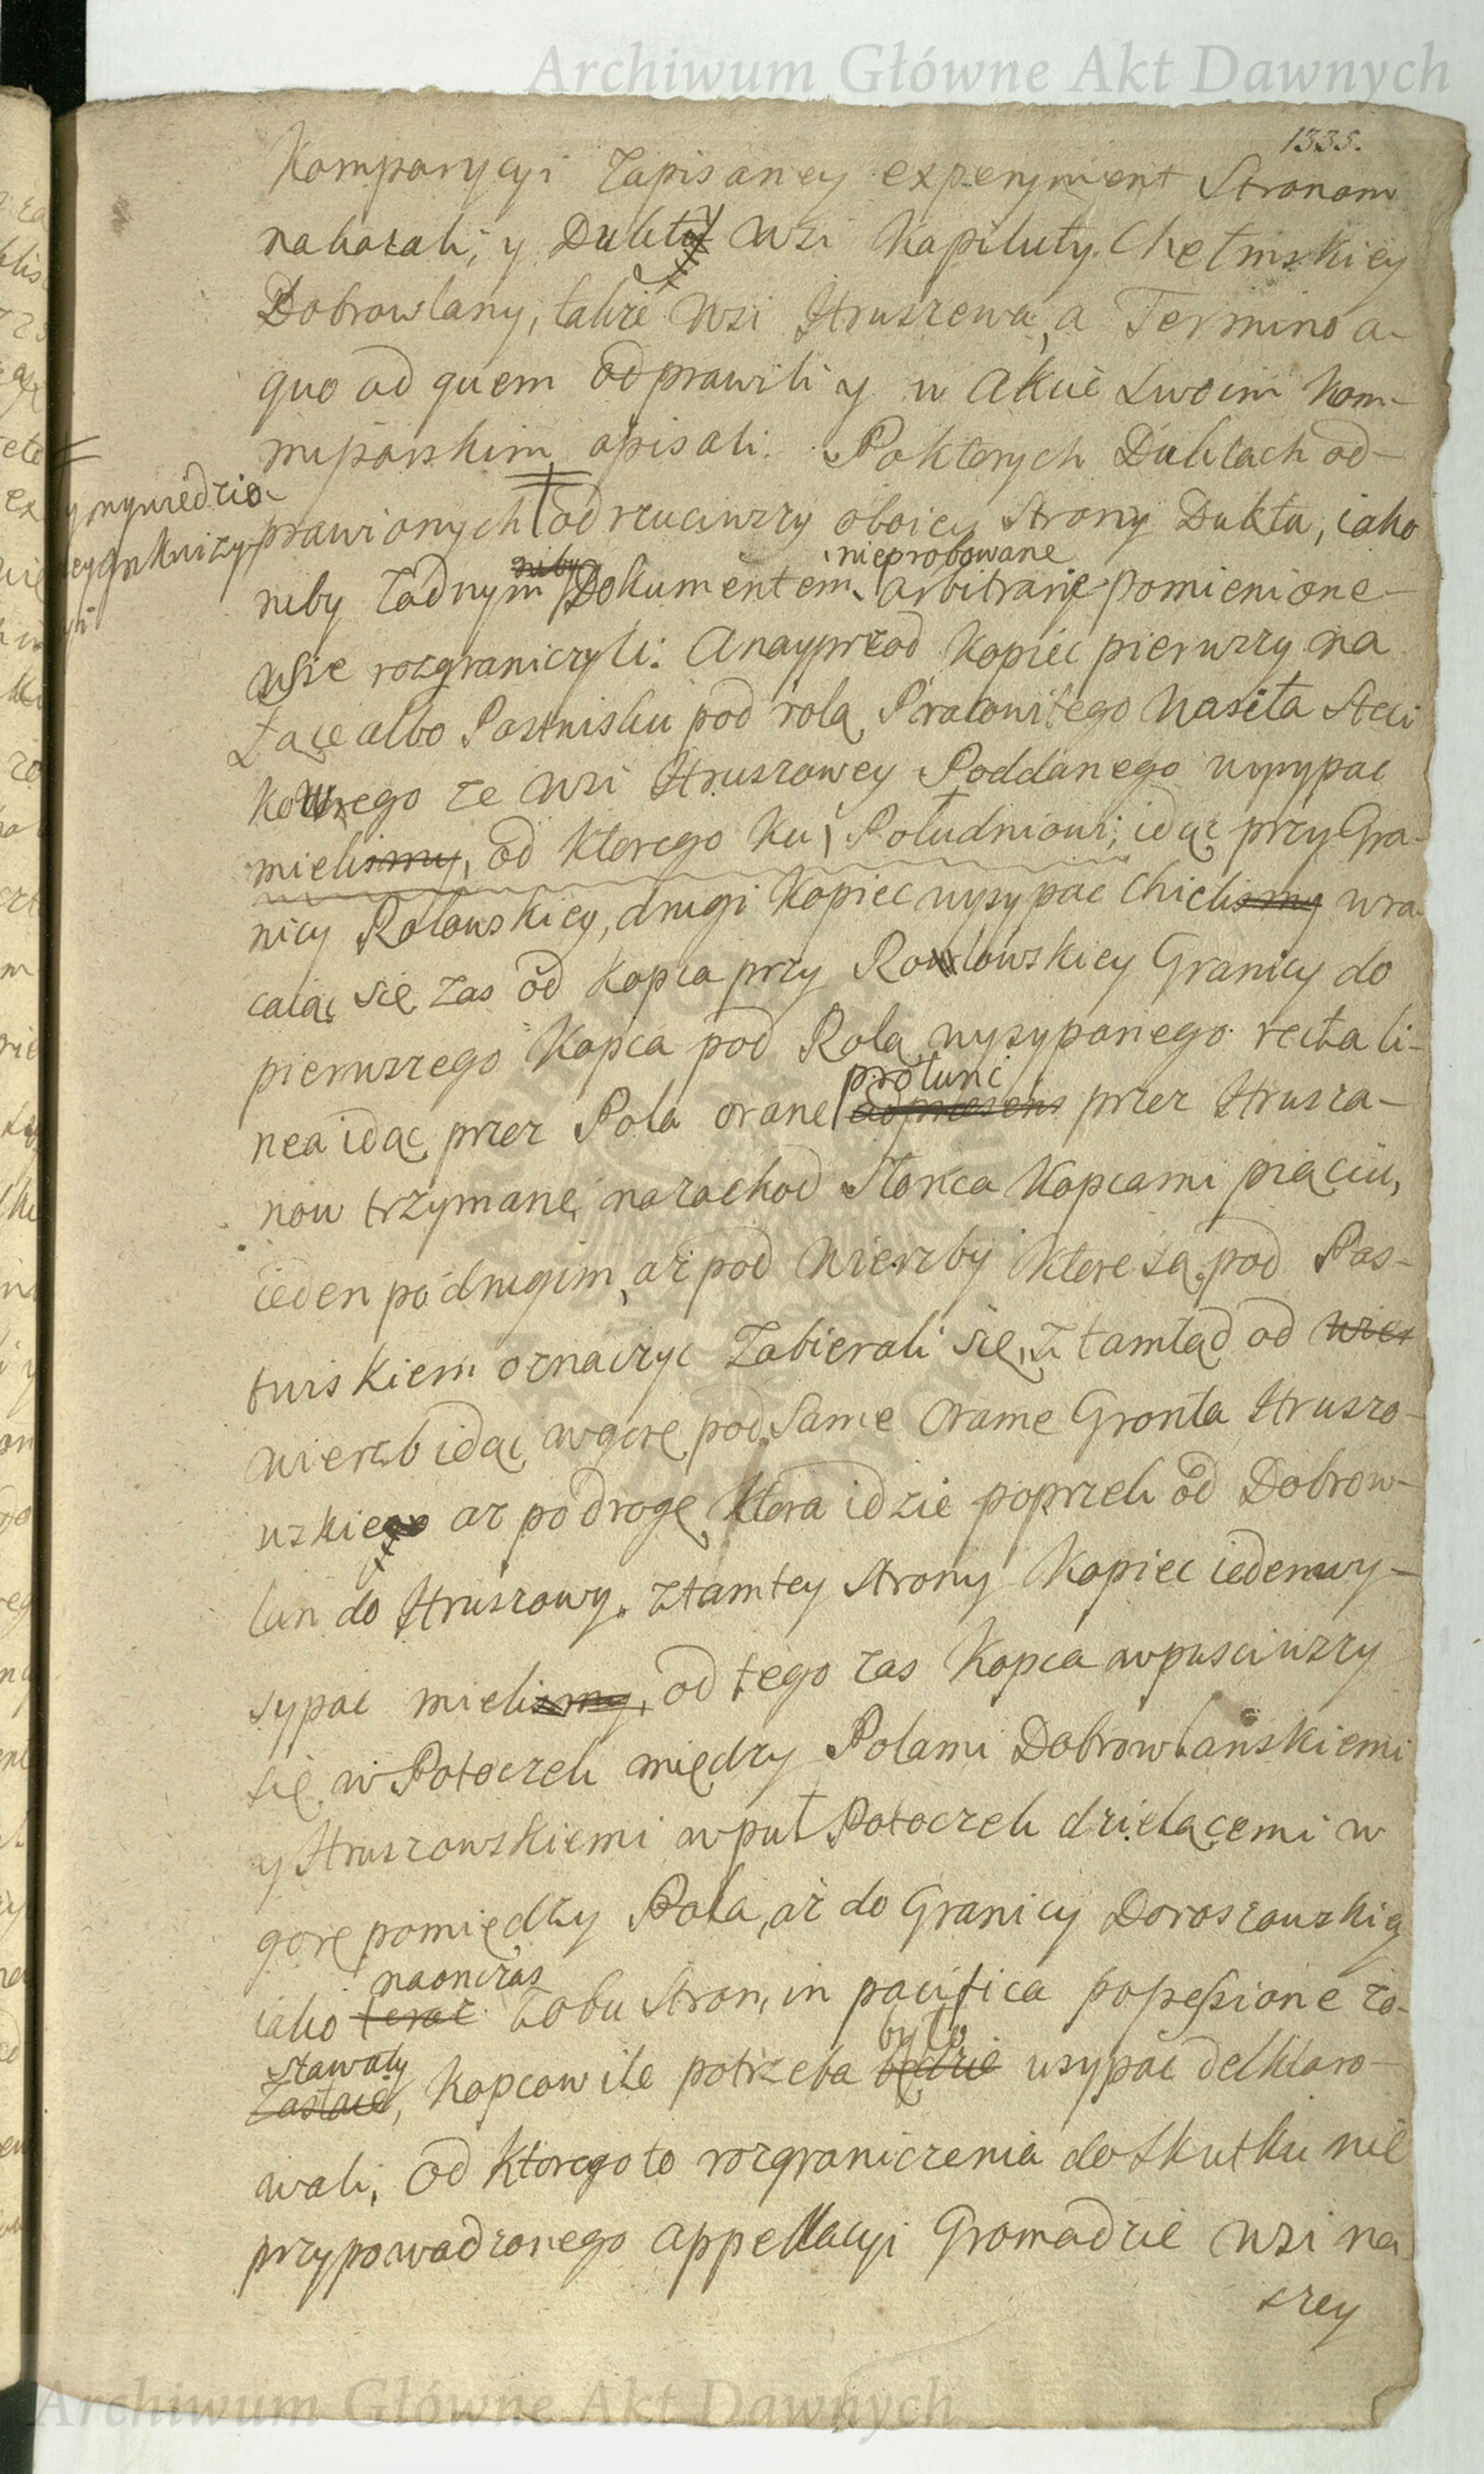 Archiwum Główne Akt Dawnych
1335.
Komparycyi Zapisaney experyment Stronom
nakazali, y Dukty Wsi Kapituły Chełmskiey
Dobrowlany, także Wsi Hruszewa, a Termino a-
quo ad quem odprawili y w Akcie Swoim Kom-
mißarskim opisali. Poktorych Duktach od-
y wywiedzio-
prawionych odrzuciwszy oboiey Strony Dukta, iako
ney Inkwizy-
niby
nieprobowane
niby żadnym Dokumentem arbitrarie pomienione
wsie rozgraniczyli: Anayprzod Kopiec pierwszy na
Łące albo Pastwisku pod rolą Pracowitego Wasila Steci
kowego ze Wsi Hruszowey Poddanego wysypac
mielismy, od Ktorego Ku Południowi, idąc przy Gra-
nicy Rolowskiey, drugi Kopiec wysypac Chcielismy wra
caiąc się zas od Kopca przy Rolowskiey Granicy do
pierwszego Kopca pod Rolą wysypanego recta li-
protunc
nea idąc przez Pola orane ad praesens przez Hrusza-
now trzymane, nazachod Słonca Kopcami piąciu,
ieden po drugim, aż pod Wierzby Ktore są pod Pas-
twiskiem oznaczyc Zabierali się, z tamtąd od wier
wierzb idąc wgorę pod Same Orame Gronta Hruszo-
wskie az po drogę Ktora idzie poprzek od Dobrow-
lan do Hruszowy. ztamtey Strony Kopiec ieden wy-
sypac mielismy, od tego zas Kopca wpusciwszy
się w Potoczek między Polami Dobrowlanskiemi
y Hruszowskiemi wpuł Potoczek dzielącemi w
gorę pomiędzy Pola, aż do Granicy Doroszowskiey
naonczas
iako teraz Zobu Stron, in pacifica poßeßione zo-
stawały
było
Zostaie, Kopcow ile potrzeba będzie usypać deklaro-
wali, Od Ktoregoto rozgraniczenia doskutku nie
przypowadzonego appellacyi Gromadzie Wsi na
szey
Archiwum Główne Akt Dawnych